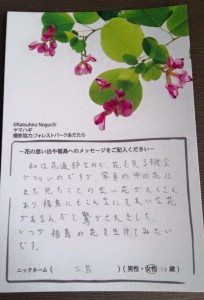 ©Katsuhiro Noguchi
ヤマハギ
撮影協力フォレストパークあだたら
～花の思い出や福島へのメッセージをご記入ください～
私は花道部なので、花を見る機会
が多いのですが、写真の中の花は
まだ見たことのない花がたくさん
あり福島にもこんなにきれいな花
があるんだと驚かされました。
いつか福島の花を生けてみたい
です。
ニックネーム( )(男性・女性 歳)